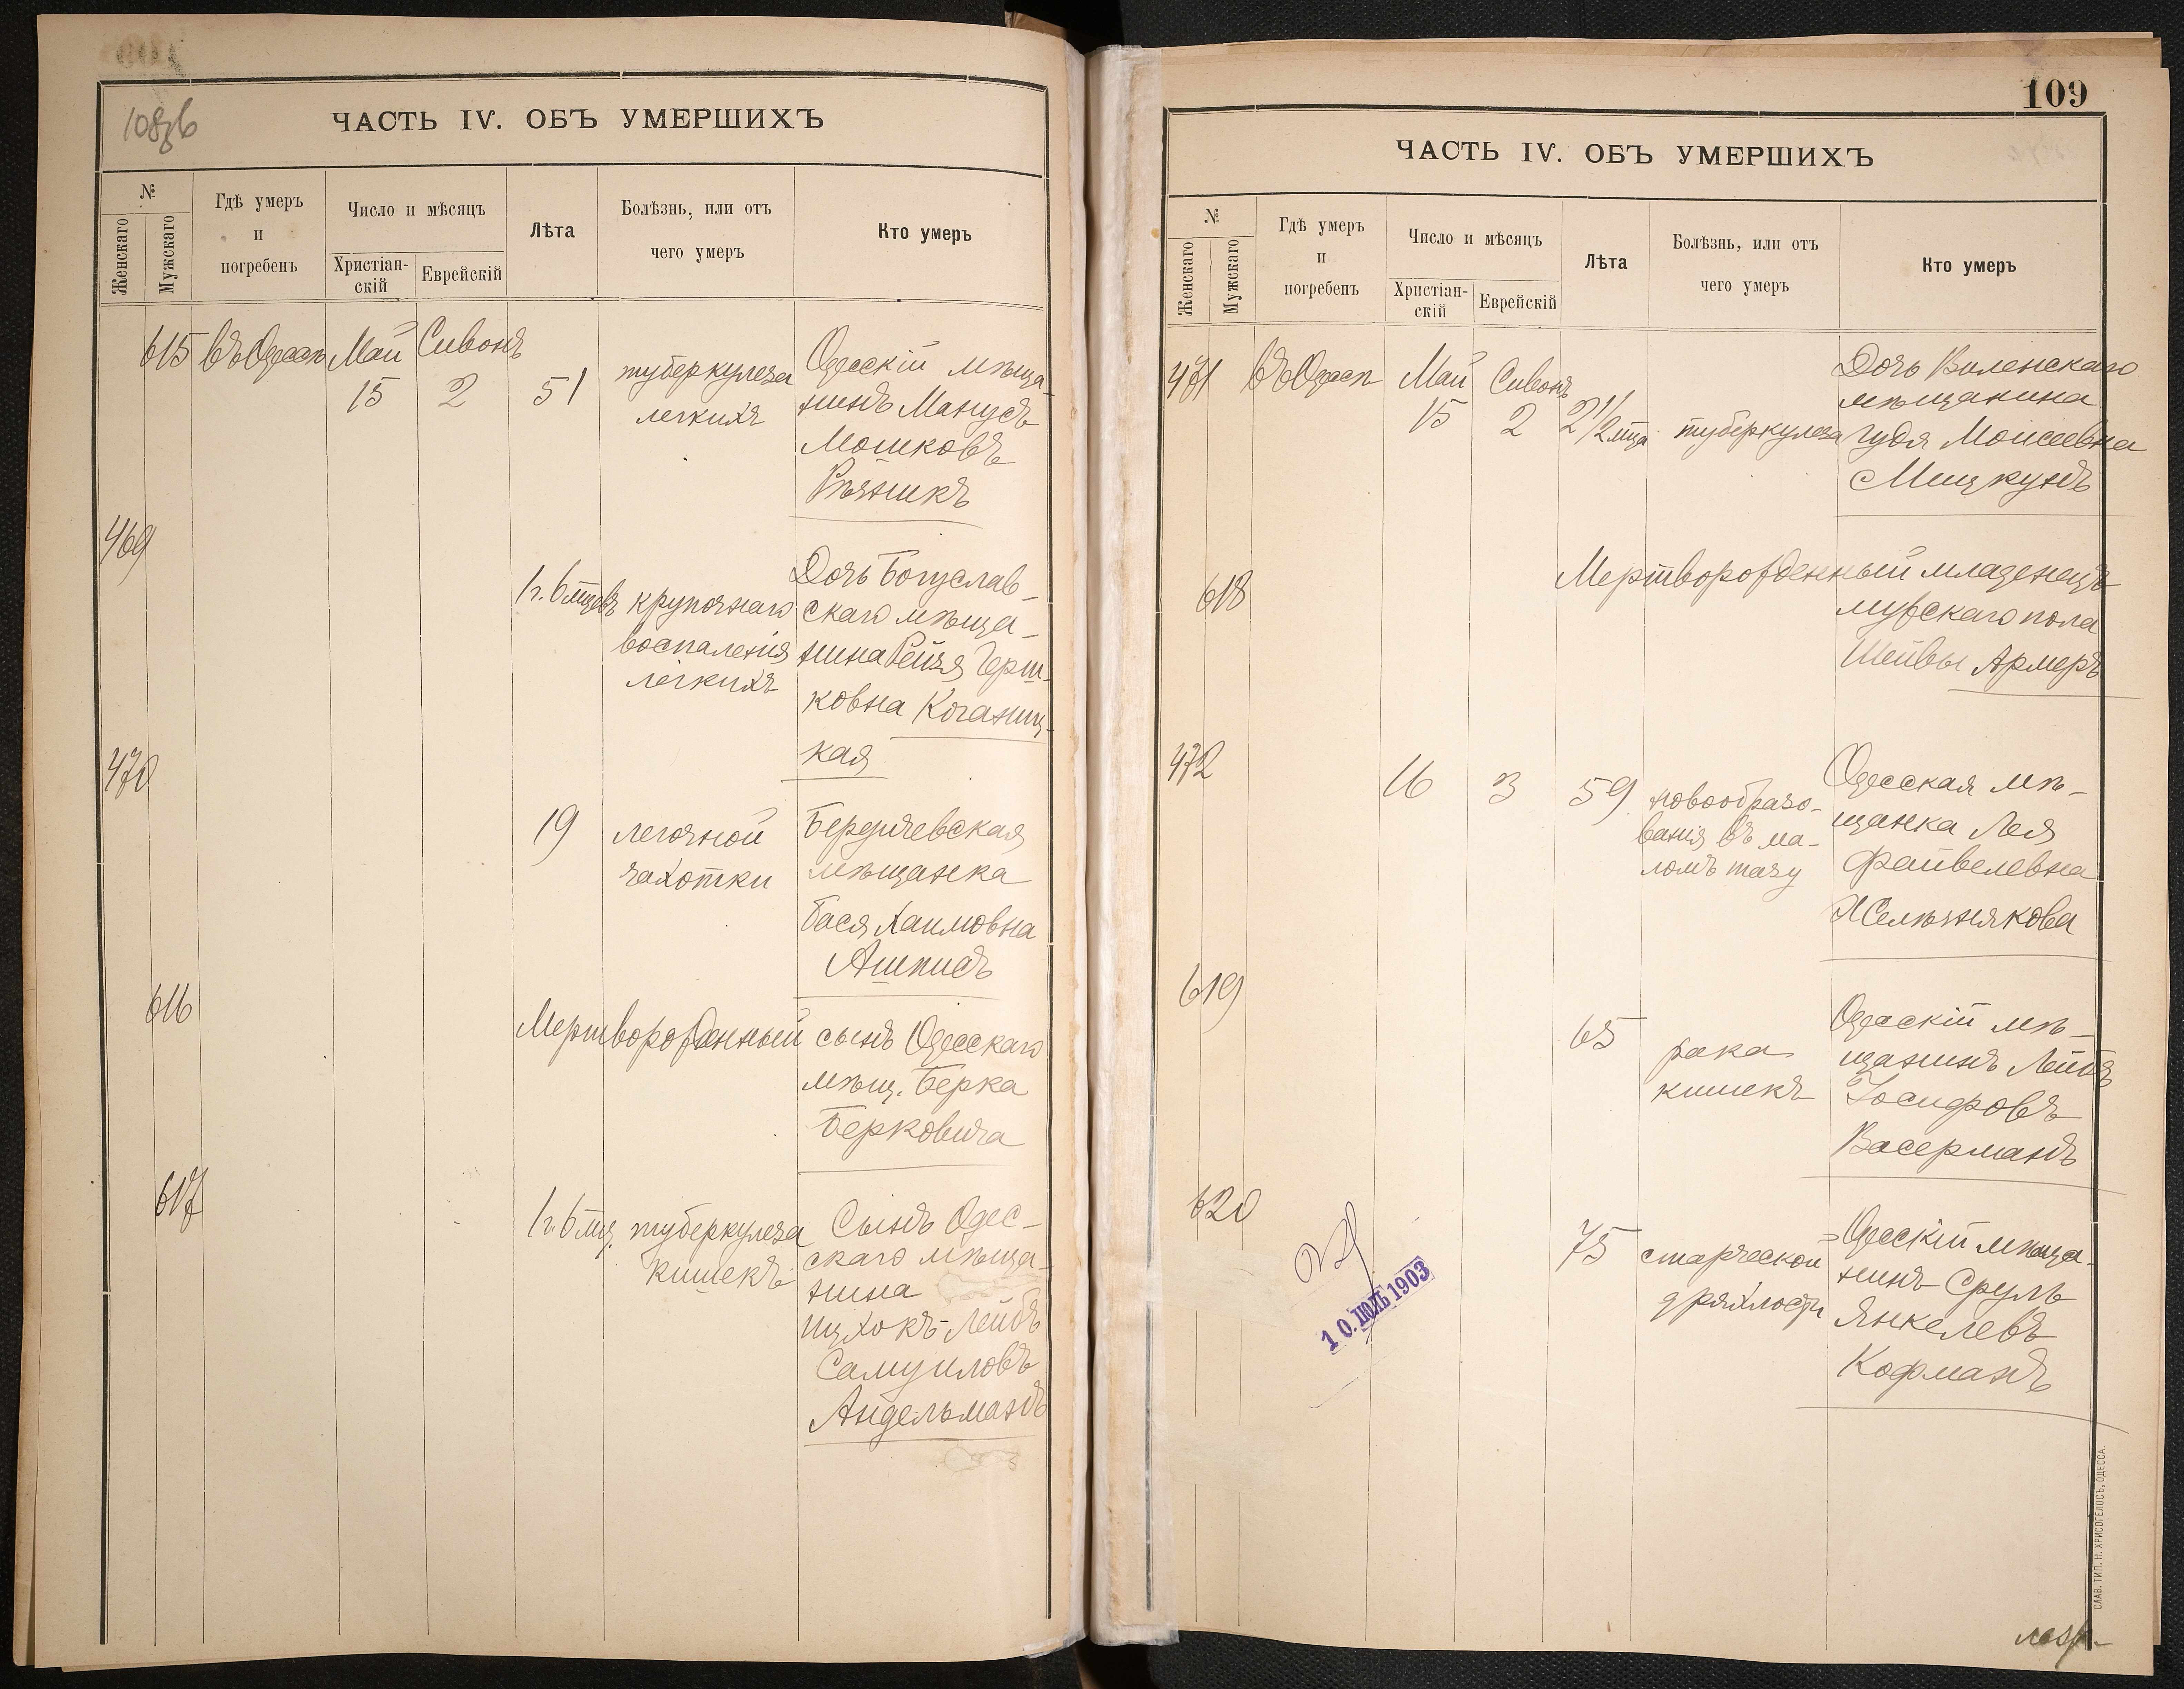 108зв
ЧАСТЬ IV. ОБЪ УМЕРШИХЪ
№
Женскаго
Мужскаго
Гдѣ умеръ
и
погребенъ
Число и мѣсяцъ
Христіан-
скій
Еврейскій
Лѣта
Болѣзнь, или отъ
чего умеръ
Кто умеръ
615 въ Одессѣ Май Сивонъ
15 2 51
туберкулеза
легкихъ
Одесскій мѣща-
нинъ Манусъ
Мошковъ
Рѣзникъ
469
1 г. 6 мцевъ
крупознаго
воспаленія
легкихъ
Дочь Богуслав-
скаго мѣща-
нина Рейзя Герш-
ковна Коганиц-
кая
470
19
легочной
чахотки
Бердичевская
мѣщанка
Бася Хаимовна
Ашписъ
616
Мертворожденный сынъ Одесскаго
мѣщ. Берка
Берковича
617
1 г. 6 мц.
туберкулеза
кишекъ
Сынъ Одес-
скаго мѣща-
нина
Ицхокъ-Лейбъ
Самуиловъ
Айдельманъ
109
ЧАСТЬ IV. ОБЪ УМЕРШИХЪ
№
Женскаго
Мужскаго
Гдѣ умеръ
и
погребенъ
Число и мѣсяцъ
Христіан-
скій
Еврейскій
Лѣта
Болѣзнь, или отъ
чего умеръ
Кто умеръ
471 въ Одессѣ Май Сивонъ
15 2 2 1/2 мца
туберкулеза
Дочь Виленскаго
мѣщанина
Гудя Моисеевна
Мицкунъ
618
Мертворожденный младенецъ
мужскаго пола
Шейвы Армеръ
472
16 3 59
новообразо-
ванія въ ма-
ломъ тазу
Одесская мѣ-
щанка Лея
Файвелевна
Желѣзнякова
619
65
рака
кишекъ
Одесскій мѣ-
щанинъ Лейбъ
Іосифовъ
Васерманъ
620
75
старческой
дряхлости
Одесскій мѣща-
нинъ Сруль
Янкелевъ
Кофманъ
10. ІЮЛЬ 1903
СЛАВ. ТИП. Н. ХРИСОГЕЛОСЪ, ОДЕССА.